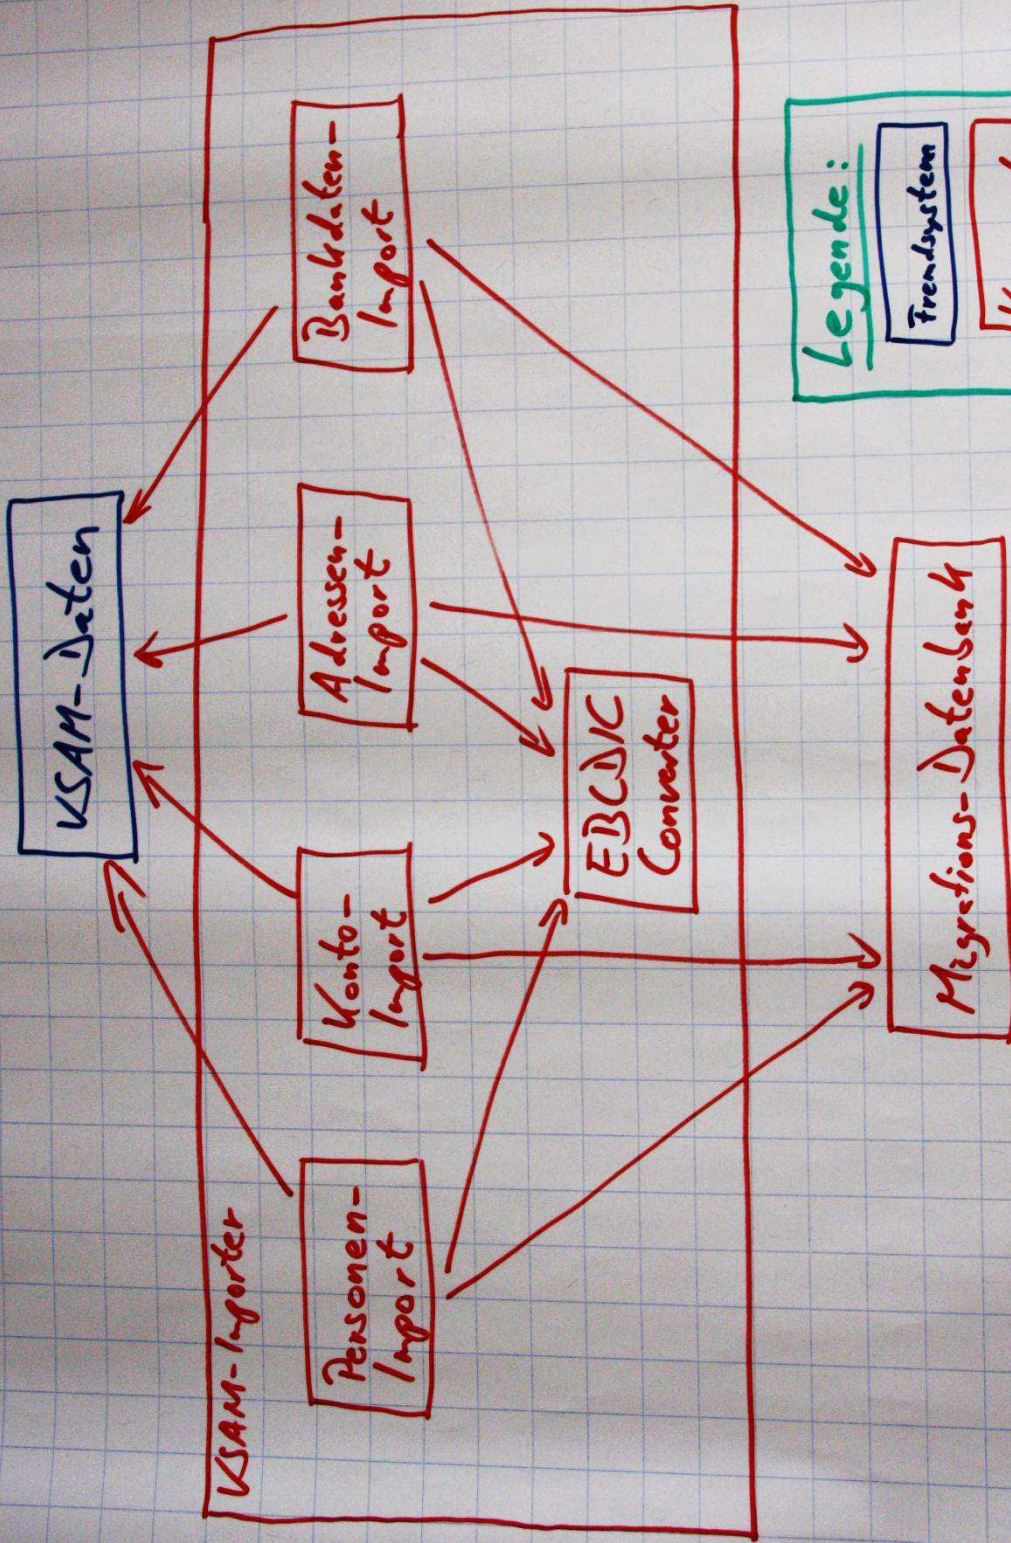 VSAM-Daten
VSAM-Importer
Personen-
Import
Konto-
Import
Adressen-
Import
Bankdaten-
Import
EBCDIC
Converter
Migrations-Datenbank
Legende:
Fremdsystem